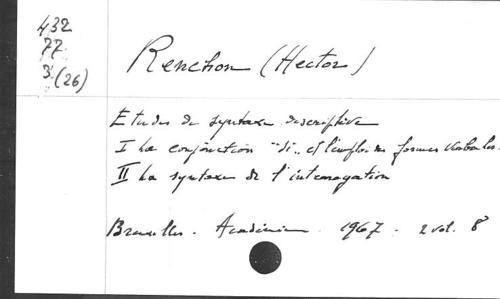 432
77
3.(26)
Renchon (Hector)
Etudes de syntaxe descriptive
I La conjonction "si" et l'emploi des formes verbales.
II La syntaxe de l'interrogation
Bruxelles. Académie. 1967. 2 vol. 8°